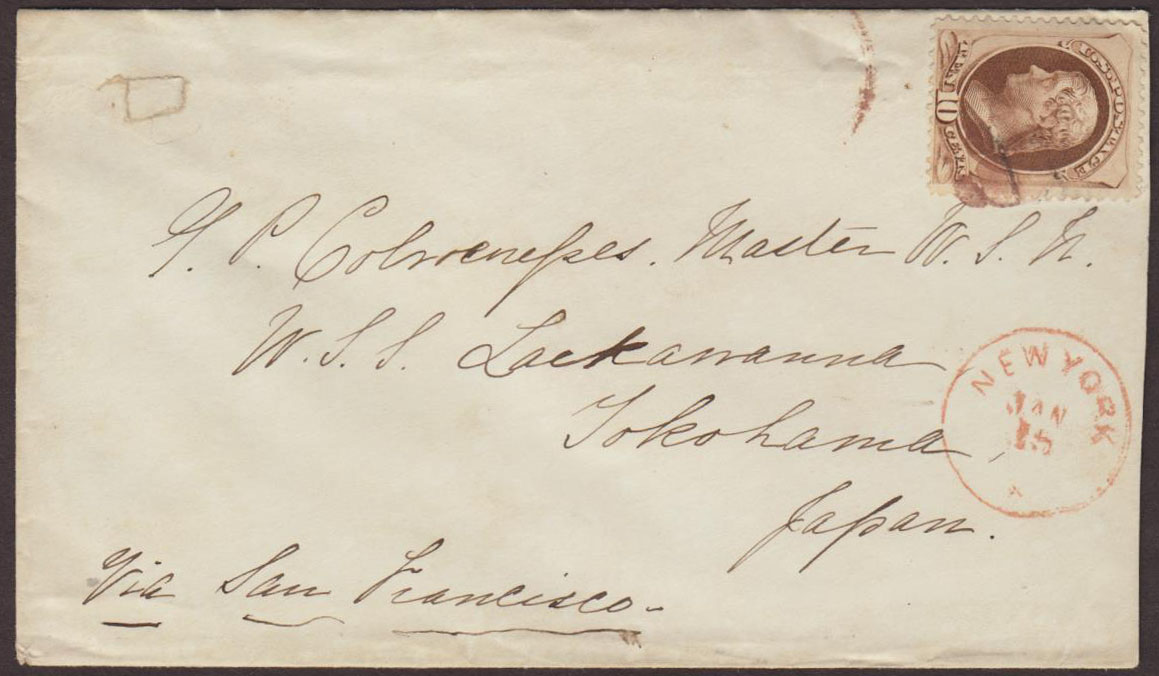 G. P. Colvocoresses. Master U. S. N.
U. S. S. Lackawanna
Yokohama,
Japan.
Via San Francisco.
NEW YORK
JAN
15
U.S. POSTAGE
TEN 10 CENTS